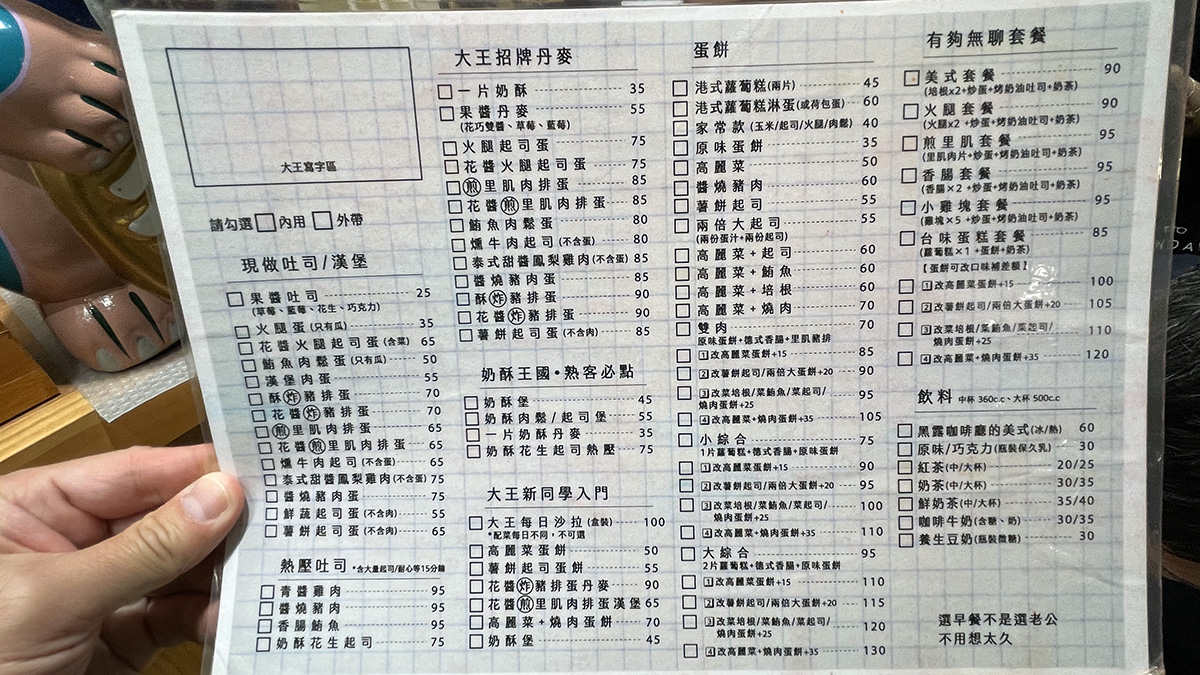 大王寫字區
請勾選 內用 外帶
現做吐司/漢堡
果醬吐司 25
(草莓、藍莓、花生、巧克力)
火腿蛋(只有瓜) 35
花醬火腿起司蛋(含菜) 65
鮪魚肉鬆蛋(只有瓜) 50
漢堡肉蛋 55
酥炸豬排蛋 70
花醬炸豬排蛋 70
煎里肌肉排蛋 65
花醬煎里肌肉排蛋 65
燻牛肉起司(不含蛋) 65
泰式甜醬鳳梨雞肉(不含蛋) 75
醬燒豬肉蛋 75
鮮蔬起司蛋(不含肉) 55
薯餅起司蛋(不含肉) 65
熱壓吐司 *含大量起司/耐心等15分鐘
青醬雞肉 95
醬燒豬肉 95
香腸鮪魚 95
奶酥花生起司 75
大王招牌丹麥
一片奶酥 35
果醬丹麥 55
(花巧雙醬、草莓、藍莓)
火腿起司蛋 75
花醬火腿起司蛋 75
煎里肌肉排蛋 85
花醬煎里肌肉排蛋 85
鮪魚肉鬆蛋 80
燻牛肉起司(不含蛋) 80
泰式甜醬鳳梨雞肉(不含蛋) 85
醬燒豬肉蛋 85
酥炸豬排蛋 90
花醬炸豬排蛋 90
薯餅起司蛋(不含肉) 85
奶酥王國•熟客必點
奶酥堡 45
奶酥肉鬆/起司堡 55
一片奶酥丹麥 35
奶酥花生起司熱壓 75
大王新同學入門
大王每日沙拉(盒裝) 100
*配菜每日不同,不可選
高麗菜蛋餅 50
薯餅起司蛋餅 55
花醬炸豬排蛋丹麥 90
花醬煎里肌肉排蛋漢堡 65
高麗菜+燒肉蛋餅 70
奶酥堡 45
蛋餅
港式蘿蔔糕(兩片) 45
港式蘿蔔糕淋蛋(或荷包蛋) 60
家常款(玉米/起司/火腿/肉鬆) 40
原味蛋餅 35
高麗菜 50
醬燒豬肉 60
薯餅起司 55
兩倍大起司 55
(兩份蛋汁+兩份起司)
高麗菜+起司 60
高麗菜+鮪魚 60
高麗菜+培根 60
高麗菜+燒肉 70
雙肉 70
原味蛋餅+德式香腸+里肌豬排
1改高麗菜蛋餅+15 85
2改薯餅起司/兩倍大蛋餅+20 90
3改菜培根/菜鮪魚/菜起司/ 95
燒肉蛋餅+25
4改高麗菜+燒肉蛋餅+35 105
小綜合 75
1片蘿蔔糕+德式香腸+原味蛋餅
1改高麗菜蛋餅+15 90
2改薯餅起司/兩倍大蛋餅+20 95
3改菜培根/菜鮪魚/菜起司/ 100
燒肉蛋餅+25
4改高麗菜+燒肉蛋餅+35 110
大綜合 95
2片蘿蔔糕+德式香腸+原味蛋餅
1改高麗菜蛋餅+15 110
2改薯餅起司/兩倍大蛋餅+20 115
3改菜培根/菜鮪魚/菜起司/ 120
燒肉蛋餅+25
4改高麗菜+燒肉蛋餅+35 130
有夠無聊套餐
美式套餐 90
(培根x2+炒蛋+烤奶油吐司+奶茶)
火腿套餐 90
(火腿x2 +炒蛋+烤奶油吐司+奶茶)
煎里肌套餐 95
(里肌肉片+炒蛋+烤奶油吐司+奶茶)
香腸套餐 95
(香腸×2 +炒蛋+烤奶油吐司+奶茶)
小雞塊套餐 95
(雞塊×5 +炒蛋+烤奶油吐司+奶茶)
台味蛋糕套餐 85
(蘿蔔糕×1 +蛋餅+奶茶)
【蛋餅可改口味補差額】
1改高麗菜蛋餅+15 100
2改薯餅起司/兩倍大蛋餅+20 105
3改菜培根/菜鮪魚/菜起司/ 110
燒肉蛋餅+25
4改高麗菜+燒肉蛋餅+35 120
飲料 中杯 360c.c、大杯 500c.c
黑露咖啡廳的美式(冰/熱) 60
原味/巧克力(瓶裝保久乳) 30
紅茶(中/大杯) 20/25
奶茶(中/大杯) 30/35
鮮奶茶(中/大杯) 35/40
咖啡牛奶(含糖、奶) 30/35
養生豆奶(瓶裝微糖) 30
選早餐不是選老公
不用想太久